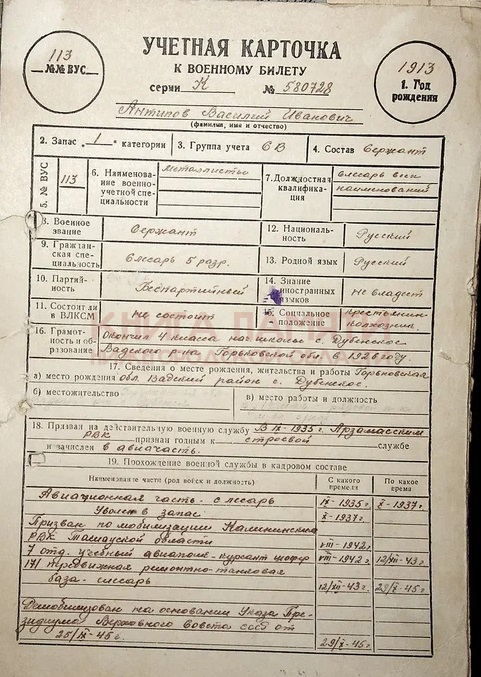 113
№№ ВУС
УЧЕТНАЯ КАРТОЧКА
К ВОЕННОМУ БИЛЕТУ
серии К № 580728
1913
1. Год
рождения
Антипов Василий Иванович
(фамилия, имя и отчество)
2. Запас 1 категории
3. Группа учета СВ
4. Состав Сержант
5. № ВУС
113
6. Наименова-
ние военно-
учетной спе-
циальности
Металлисты
7. Должностная
квалифика-
ция
слесарь всех
наименований
8. Военное
звание
Сержант
12. Националь-
ность
Русский
9. Граждан-
ская спе-
циальность
слесарь 5 разр.
13. Родной язык
Русский
10. Партий-
ность
Беспартийный
14. Знание
иностранных
языков
Не владеет
11. Состоит ли
в ВЛКСМ
Не состоит
15. Социальное
положение
колхозник
16. Грамот-
ность и об-
разование
Окончил 4 класса нач школы с. Дубенское
Вадского р-на Горьковской обл. 1926 году.
17. Сведения о месте рождения, жительства и работы Горьковская
а) место рождения обл. Вадский район с. Дубенское.
б) местожительство
в) место работы и должность
18. Призван на действительную военную службу В IX-1935 г. Арзамасским
РВК признан годным к строевой службе
и зачислен в авиачасть.
19. Прохождение военной службы в кадровом составе
Наименование части (род войск и должность)
С какого
времени
По какое
время
Авиационная часть - слесарь IX-1935 г. X-1937 г.
Уволен в запас X-1937 г.
Призван по мобилизации Калининским
РВК Ташауской области VIII-1942 г.
7 отд. учебный авиаполк - курсант шофер VIII-1942 г. 12/III-43 г.
171 передвижная ремонтно-танковая
база - слесарь 12/III-43 г. 29/X-45 г.
Демобилизован на основании Указа Пре-
зидиума Верховного Совета СССР от
25/IX-45 г. 29/X-45 г.